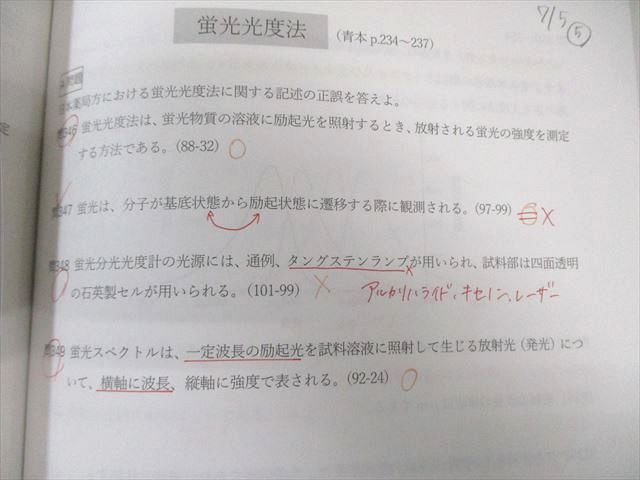 7/5 ⑤
蛍光光度法
(青本 p.234～237)
問題
日本薬局方における蛍光光度法に関する記述の正誤を答えよ。
問346 蛍光光度法は、蛍光物質の溶液に励起光を照射するとき、放射される蛍光の強度を測定
する方法である。(88-32) ○
問347 蛍光は、分子が基底状態から励起状態に遷移する際に観測される。(97-99) ×
問348 蛍光分光光度計の光源には、通例、タングステンランプが用いられ、試料部は四面透明
の石英製セルが用いられる。(101-99) × アルカリハライド、キセノン、レーザー
問349 蛍光スペクトルは、一定波長の励起光を試料溶液に照射して生じる放射光(発光)につ
いて、横軸に波長、縦軸に強度で表される。(92-24) ○